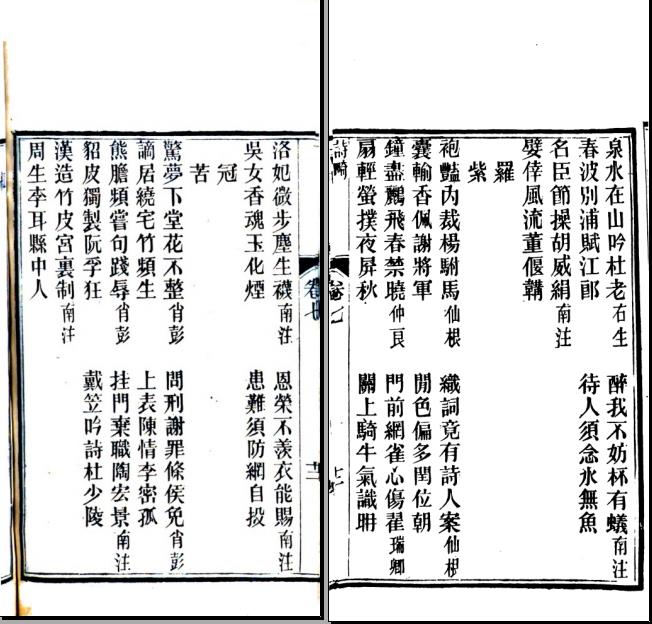 泉水在山吟杜老右生　醉我不妨杯有蟻南注
春波別浦賦江郎　待人須念氷無魚
名臣節操胡威絹南注
嬖倖風流董偃鞲
羅
紫
袍豔內裁楊駙馬仙根　織詞竟有詩人案仙根
囊輸香佩謝將軍　閒色偏多閏位朝
鐘盡鸝飛春禁曉仲良　門前網雀心傷翟瑞卿
扇輕螢撲夜屏秋　關上騎牛氣識耼
詩畸
卷七
卷七
洛妃微步塵生襪南注　恩榮不羨衣能賜南注
吳女香魂玉化煙　患難須防網自投
冠
苦
驚夢下堂花不整肖彭　問刑謝罪條侯免肖彭
謫居繞宅竹頻生　上表陳情李密孤
熊膽頻嘗句踐辱肖彭　挂門棄職陶宏景南注
貂皮獨製阮孚狂　戴笠吟詩杜少陵
漢造竹皮宮裏制南注
周生李耳縣中人